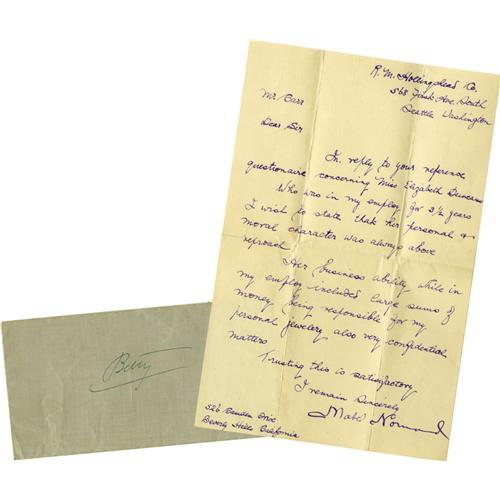 R. M. Hollingshead Co.
568 First Ave. South
Seattle Washington
Mr Carr
Dear Sir
In reply to your reference
questionaire concerning Miss Elizabeth Duncan
Who was in my employ for 2½ years
I wish to state that her personal &
moral character was always above
reproach.
Her business ability while in
my employ included large sums of
money, being responsible for my
personal jewelery also very confidential
matters.
Trusting this is satisfactory
I remain Sincerely
Mabel Normand
526 Camden Drive
Beverly Hills California
Betty